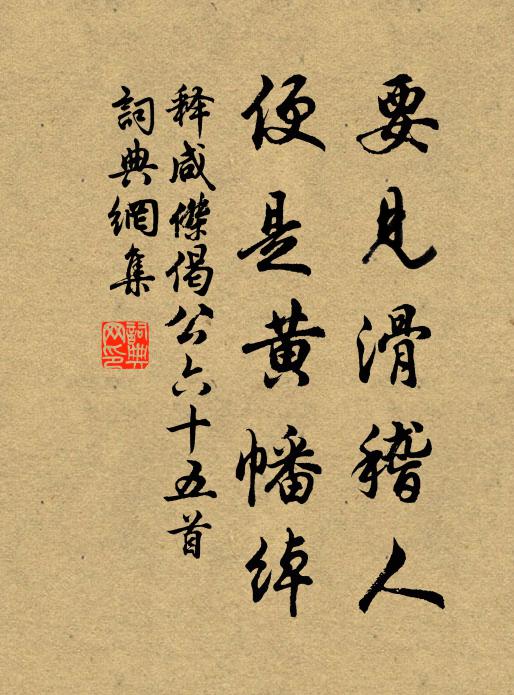 要見滑稽人
便是黃幡綽
释咸傑偈公六十五首
詞典網集
詞典网印